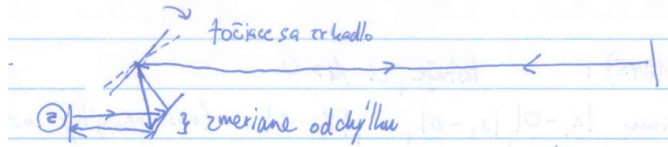 točiace sa zrkadlo
Z } zmeriame odchýlku